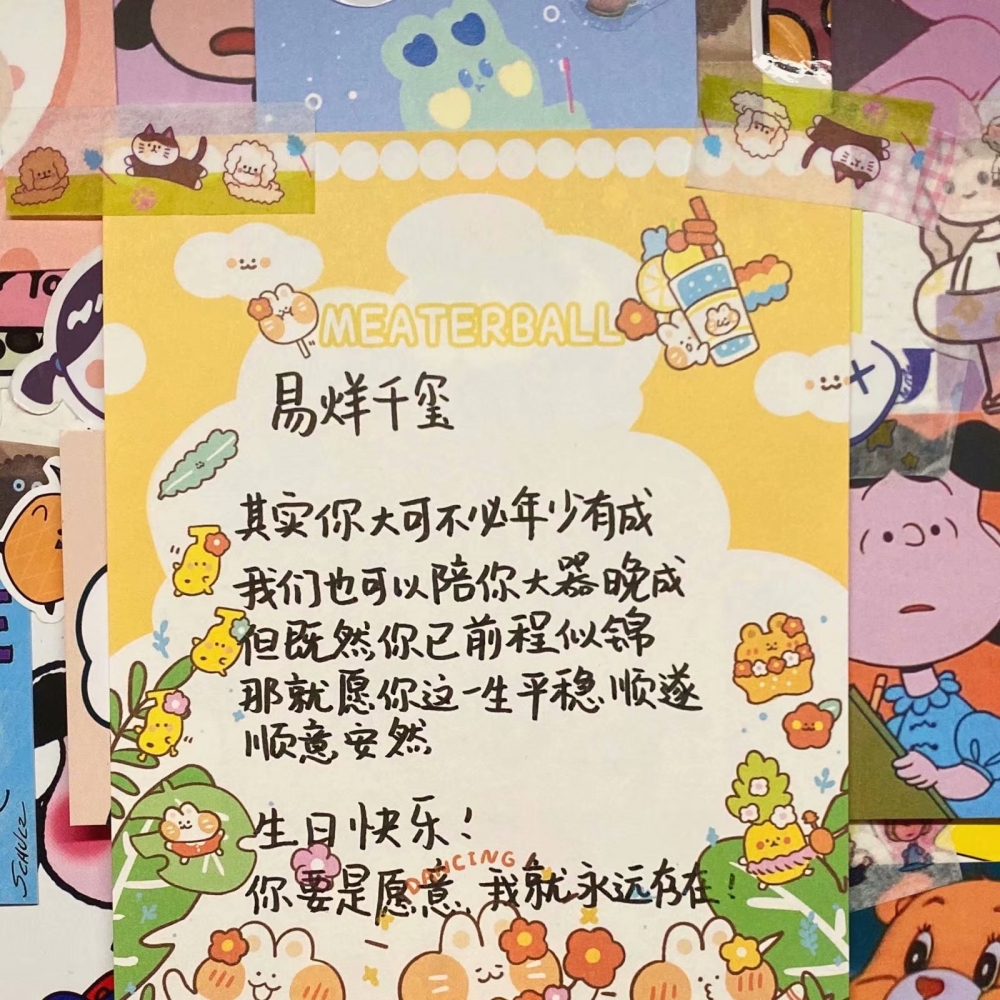 TO
MEATERBALL
易烊千玺
其实你大可不必年少有成
我们也可以陪你大器晚成
但既然你已前程似锦
那就愿你这一生平稳顺遂
顺意安然
生日快乐！
DANCING
你要是愿意，我就永远存在！
SCHULZ